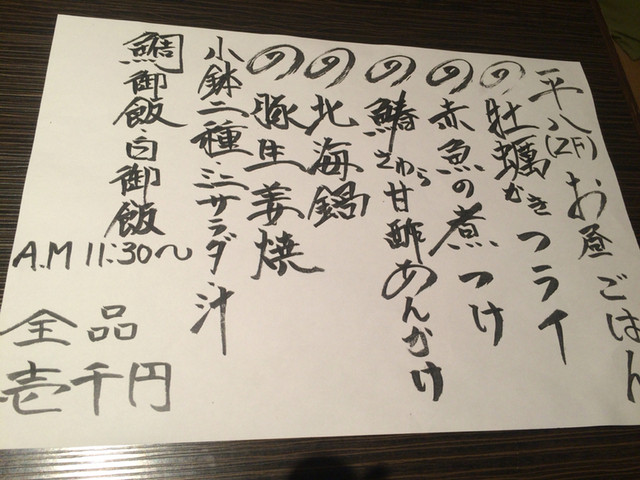 平八(2F)お昼ごはん
の牡蠣かきフライ
の赤魚の煮つけ
の鰆さわら甘酢あんかけ
の北海鍋
の豚生姜焼
小鉢二種ミニサラダ汁
鯛御飯・白御飯
A.M 11:30〜
全品
壱千円